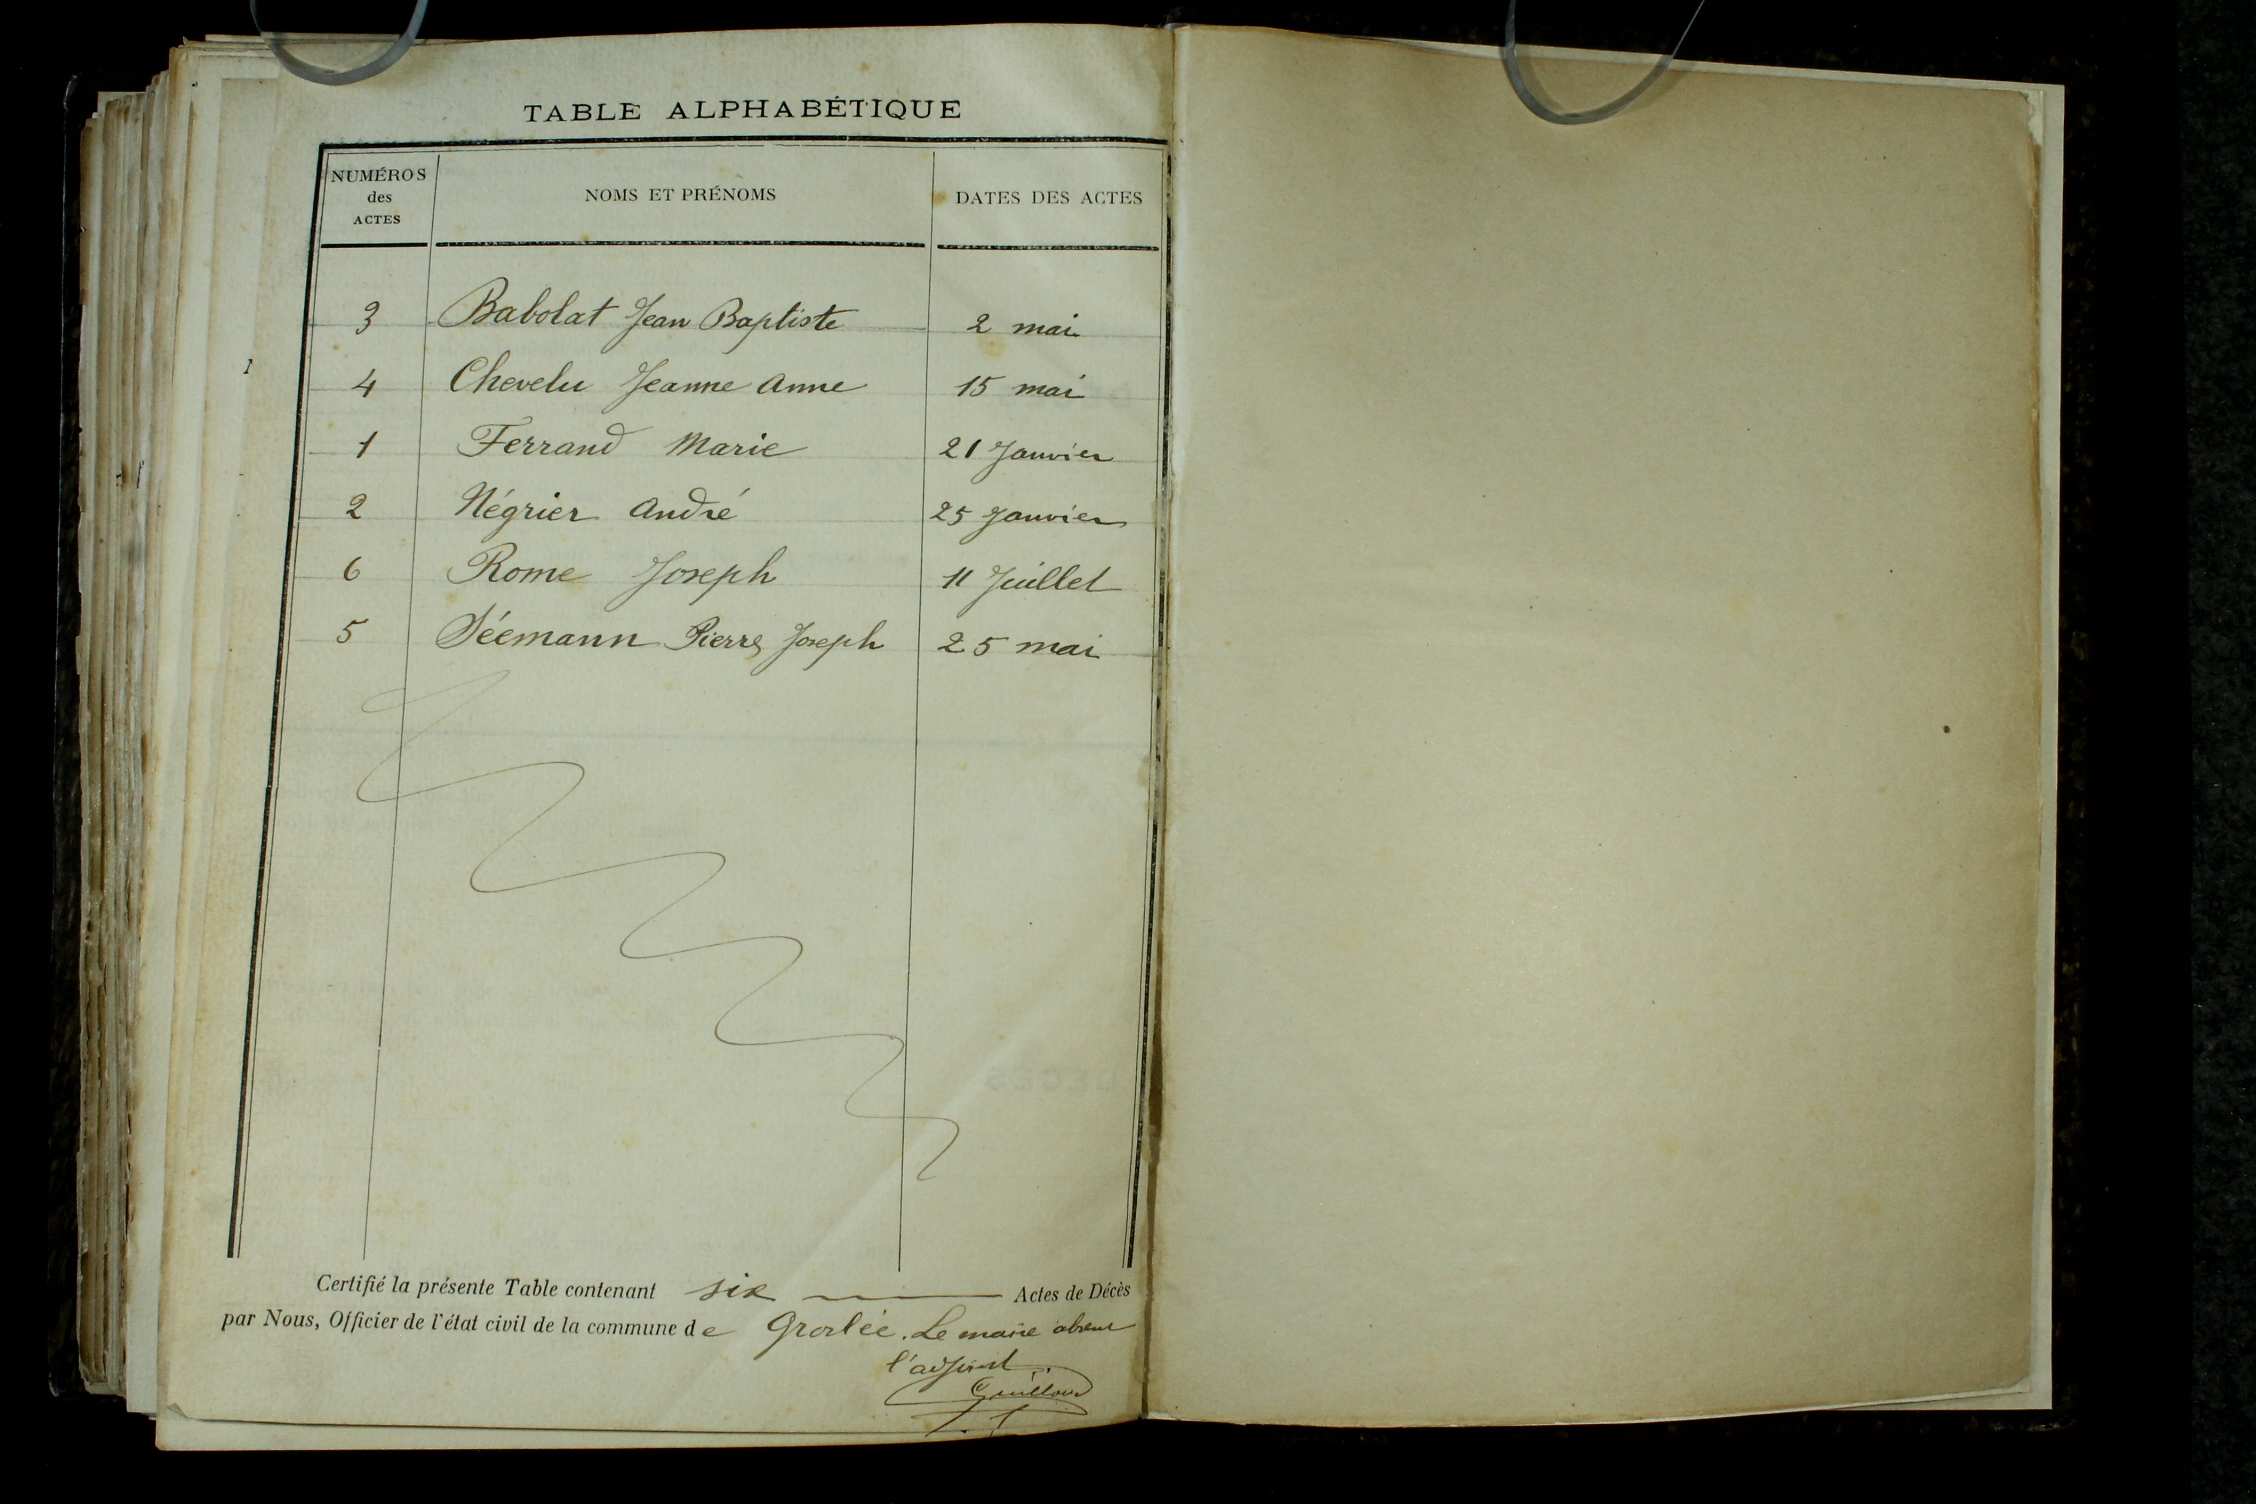 TABLE ALPHABÉTIQUE
NUMÉROS des ACTES NOMS ET PRÉNOMS DATES DES ACTES
3 Babolat Jean Baptiste 2 mai
4 Chevelu Jeanne Anne 15 mai
1 Ferrand Marie 21 Janvier
2 Négrier André 25 Janvier
6 Rome Joseph 11 Juillet
5 Séemann Pierre Joseph 25 mai
Certifié la présente Table contenant six Actes de Décès
par Nous, Officier de l'état civil de la commune de Groslée. Le maire absent
l'adjoint
Guilloud